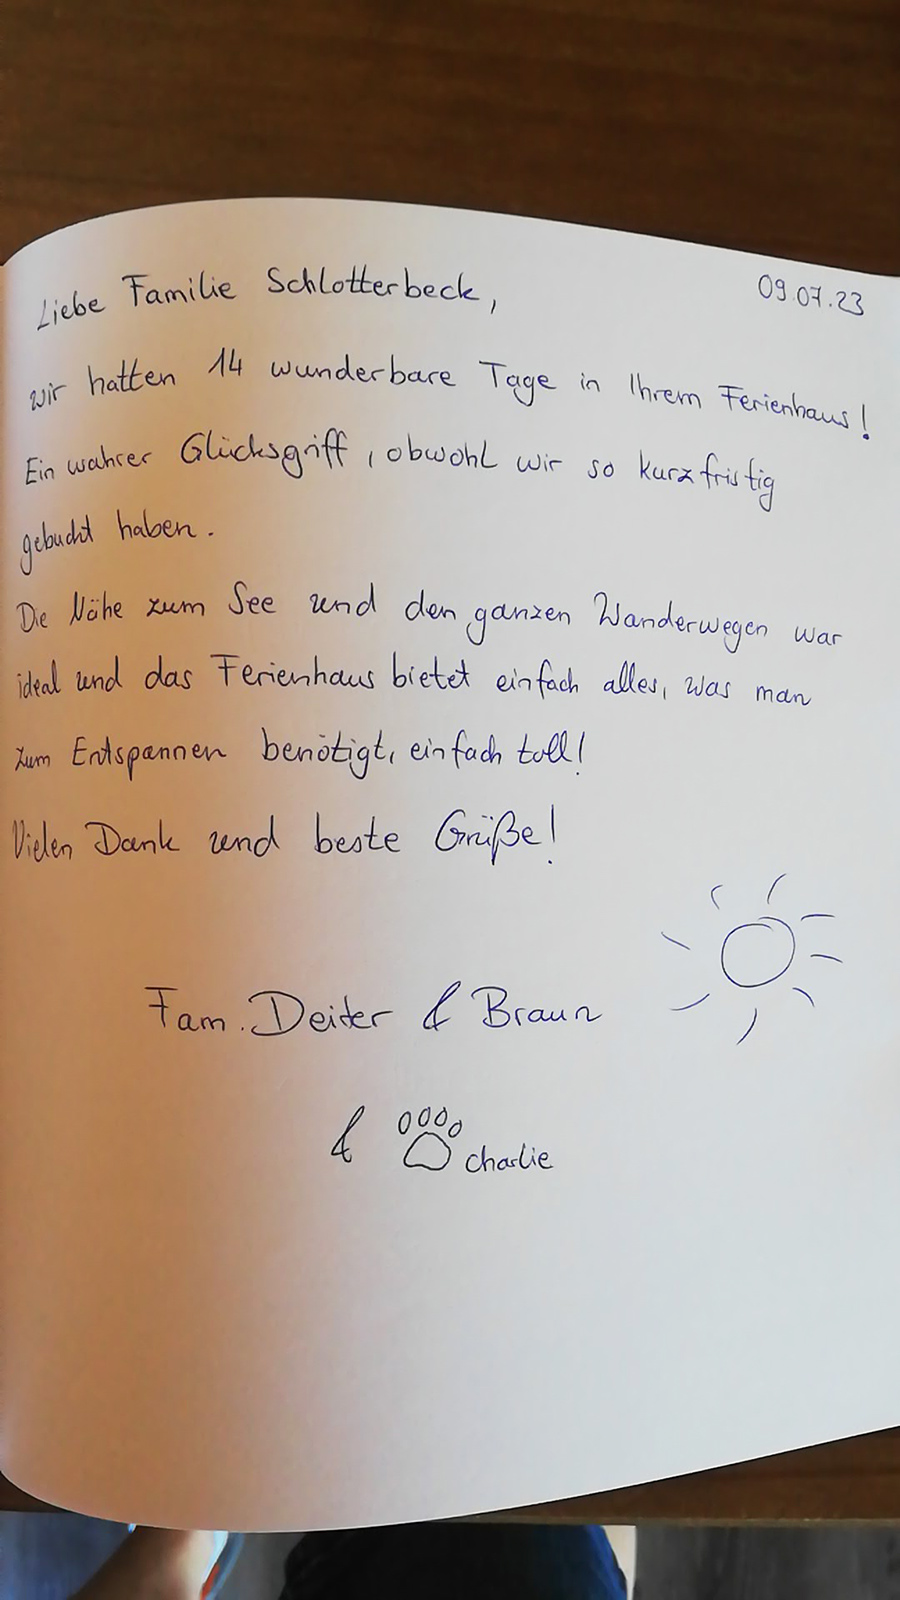 09.07.23
Liebe Familie Schlotterbeck,
wir hatten 14 wunderbare Tage in Ihrem Ferienhaus!
Ein wahrer Glücksgriff, obwohl wir so kurzfristig
gebucht haben.
Die Nähe zum See und den ganzen Wanderwegen war
ideal und das Ferienhaus bietet einfach alles, was man
zum Entspannen benötigt, einfach toll!
Vielen Dank und beste Grüße!
Fam. Deiter & Braun
& charlie